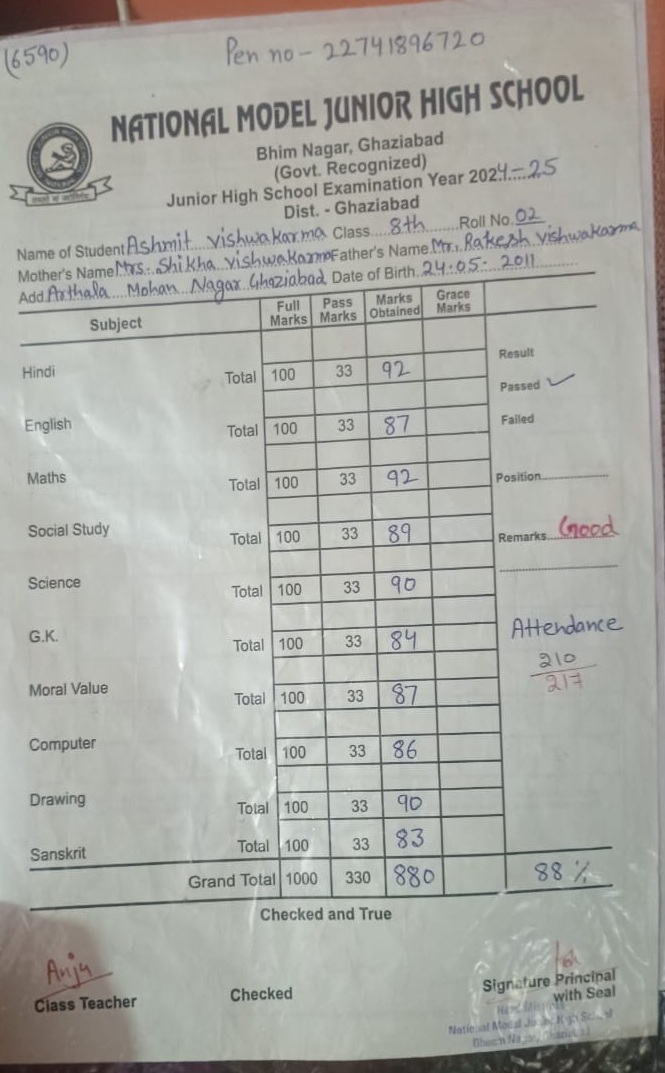 (6590)
Pen no - 22741896720
NATIONAL MODEL JUNIOR HIGH SCHOOL
Bhim Nagar, Ghaziabad
(Govt. Recognized)
Junior High School Examination Year 2024-25
Dist. - Ghaziabad
Name of Student Ashmit vishwakarma Class 8th Roll No. 02
Mother's Name Mrs. Shikha vishwakarma Father's Name Mr. Rakesh vishwakarma
Add Arthala Mohan Nagar Ghaziabad Date of Birth 24-05-2011
Subject Full Marks Pass Marks Marks Obtained Grace Marks
Hindi Total 100 33 92
English Total 100 33 87
Maths Total 100 33 92
Social Study Total 100 33 89
Science Total 100 33 90
G.K. Total 100 33 84
Moral Value Total 100 33 87
Computer Total 100 33 86
Drawing Total 100 33 90
Sanskrit Total 100 33 83
Grand Total 1000 330 880 88 %
Result
Passed ✓
Failed
Position
Remarks Good
Attendance
210
217
Checked and True
Anju
Class Teacher
Checked
Signature Principal
with Seal
National Model Junior High School